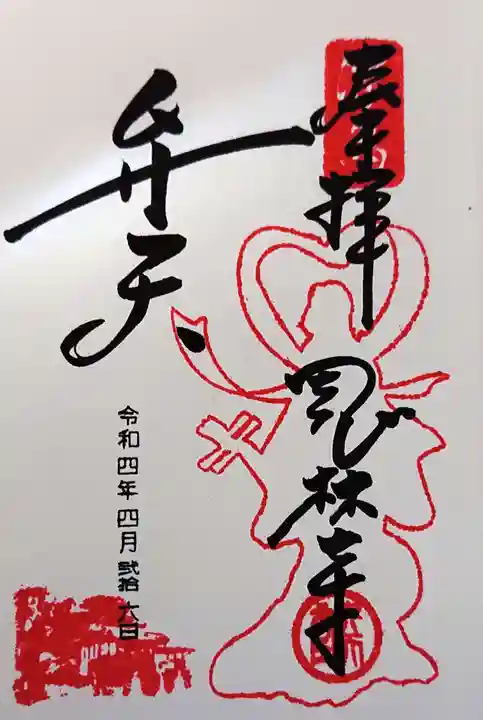 奉拝
恩林寺
弁天
令和四年四月弐拾六日